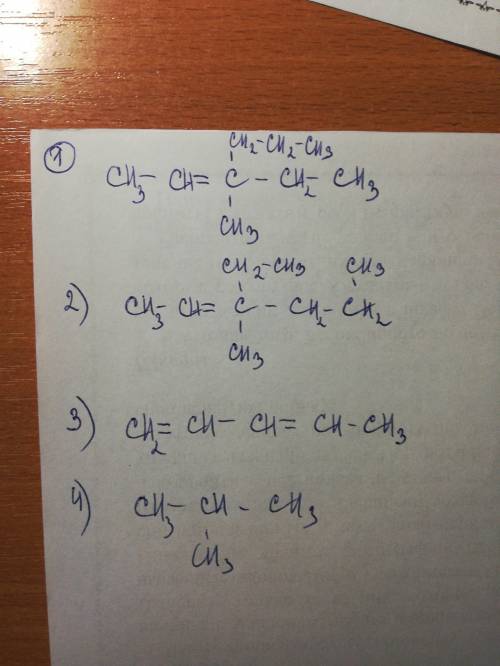 1
CH2-CH2-CH3
CH3- CH= C - CH2- CH3
CH3
CH2-CH3 CH3
2) CH3- CH= C - CH2- CH2
CH3
3) CH2= CH- CH= CH-CH3
4) CH3- CH - CH3
CH3